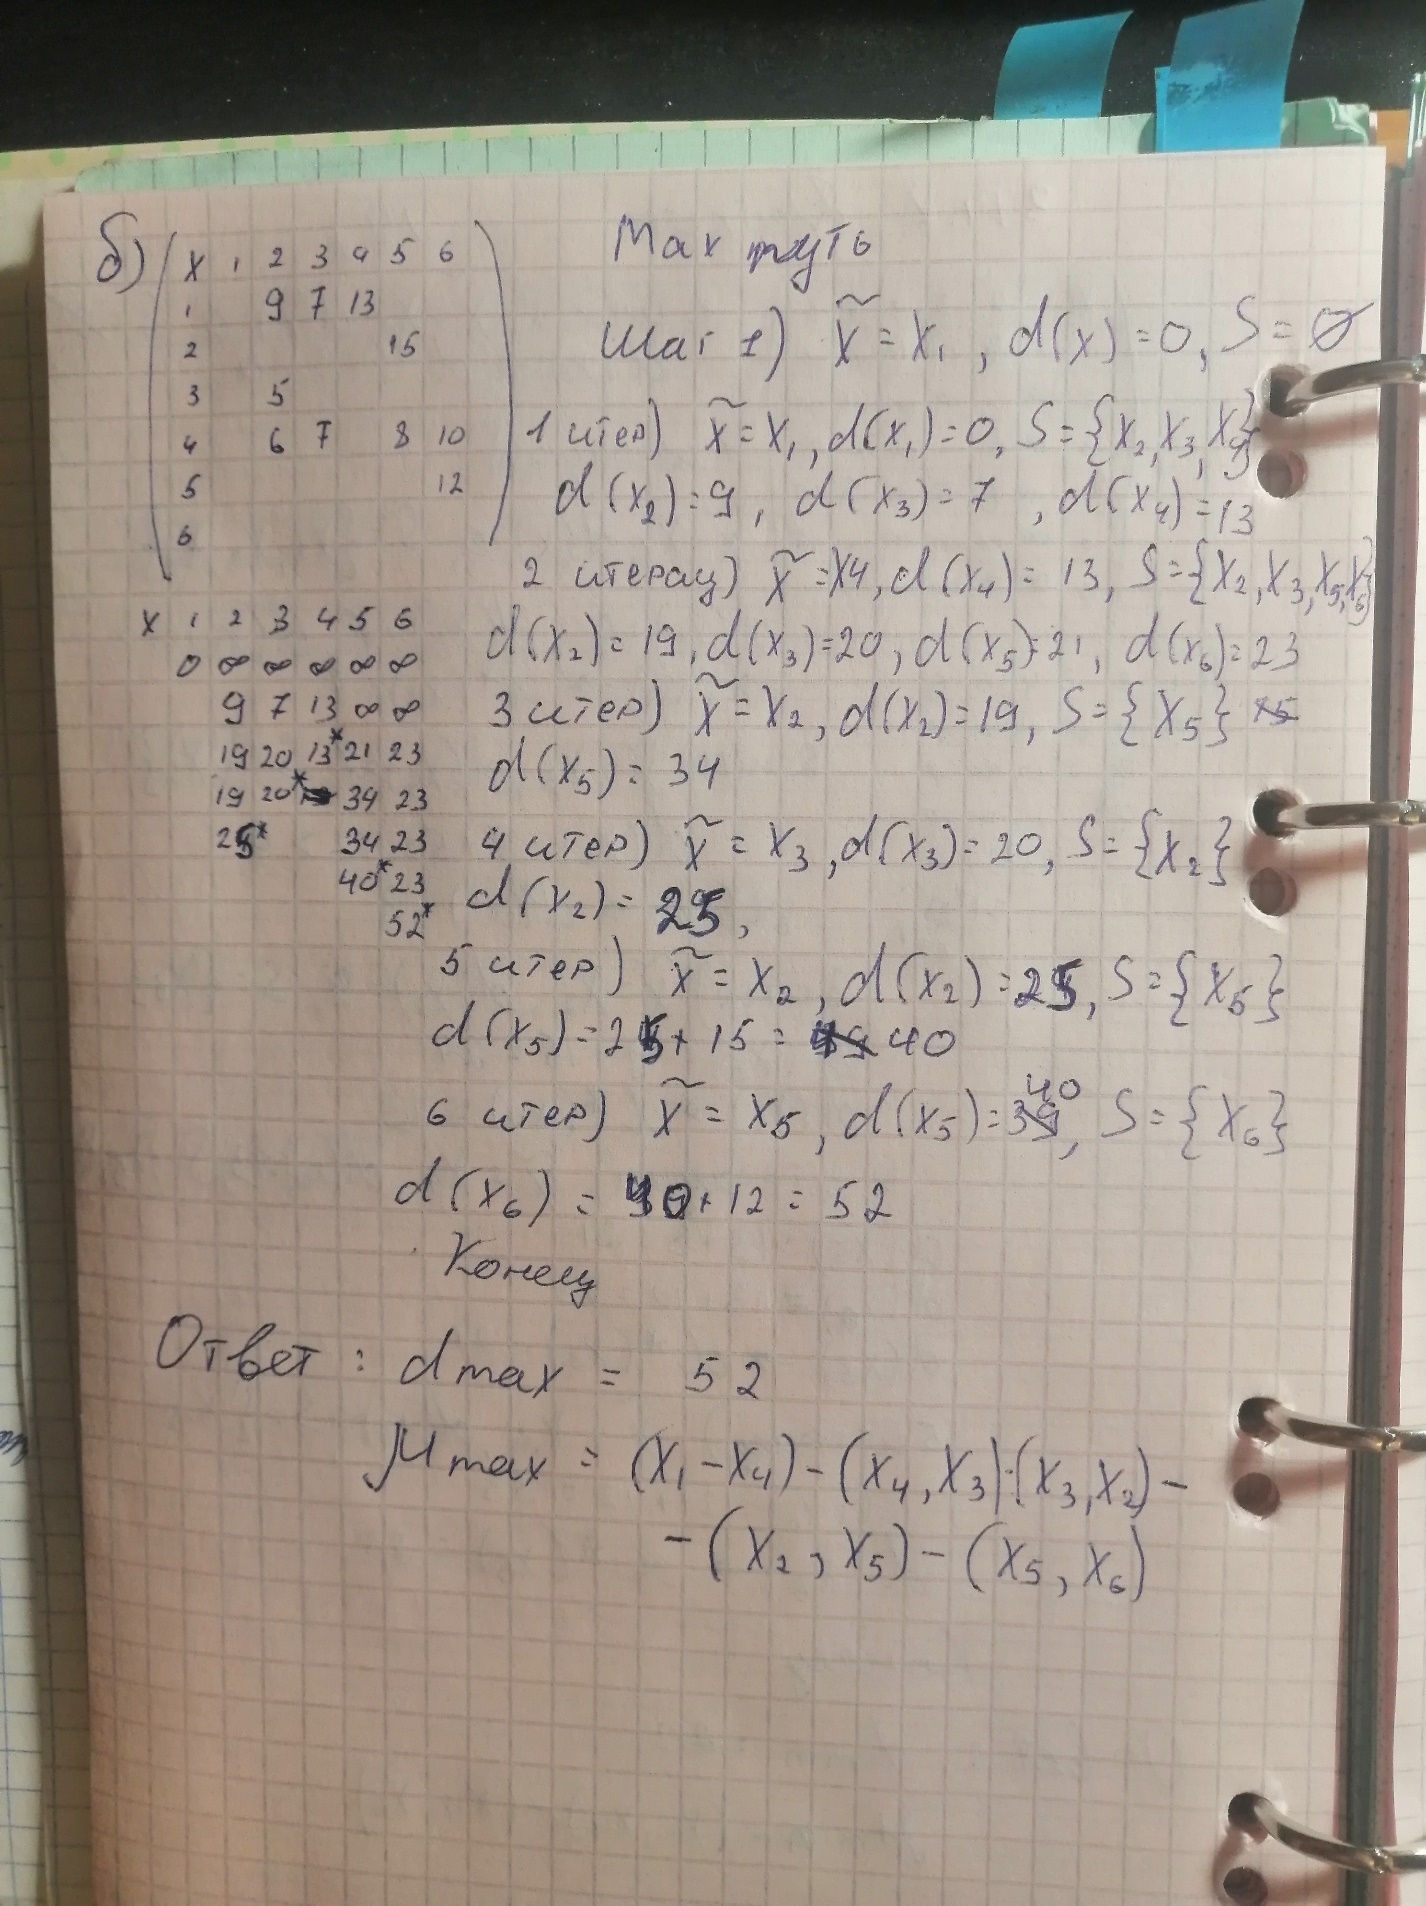 б) X 1 2 3 4 5 6
1 9 7 13
2 15
3 5
4 6 7 8 10
5 12
6
Max путь
Шаг 1) x̃ = x₁, d(x) = 0, S = ∅
1 итер) x̃ = x₁, d(x₁) = 0, S = {x₂, x₃, x₄}
d(x₂) = 9, d(x₃) = 7, d(x₄) = 13
2 итерац) x̃ = x4, d(x₄) = 13, S = {x₂, x₃, x₅, x₆}
d(x₂) = 19, d(x₃) = 20, d(x₅) = 21, d(x₆) = 23
3 итер) x̃ = x₂, d(x₂) = 19, S = {x₅}
d(x₅) = 34
4 итер) x̃ = x₃, d(x₃) = 20, S = {x₂}
d(x₂) = 25,
5 итер) x̃ = x₂, d(x₂) = 25, S = {x₅}
d(x₅) = 25 + 15 = 40
6 итер) x̃ = x₅, d(x₅) = 40, S = {x₆}
d(x₆) = 40 + 12 = 52
Конец
X 1 2 3 4 5 6
0 ∞ ∞ ∞ ∞ ∞
9 7 13 ∞ ∞
19 20 13* 21 23
19 20* 34 23
25* 34 23
40* 23
52*
Ответ: dmax = 52
μmax = (x₁ - x₄) - (x₄, x₃) - (x₃, x₂) -
- (x₂, x₅) - (x₅, x₆)